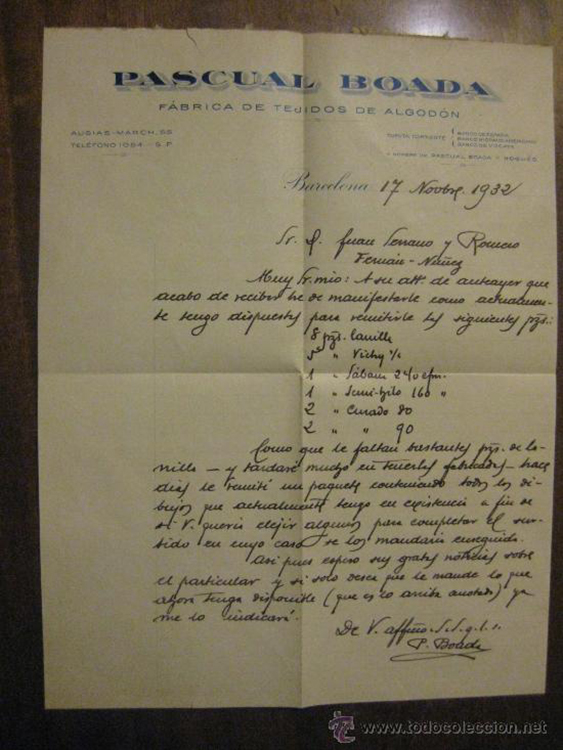 PASCUAL BOADA
FÁBRICA DE TEJIDOS DE ALGODÓN
AUSIAS-MARCH, 58
TELÉFONO 1084 - S. P.
CUENTA CORRIENTE
BANCO DE ESPAÑA
BANCO HISPANO AMERICANO
BANCO DE VIZCAYA
A NOMBRE DE PASCUAL BOADA Y NOGUÉS
Barcelona 17 Novbre. 1932
Sr. D. Juan Serrano y Romero
Fernán-Núñez
Muy Sr. mio: A su att. de anteayer que
acabo de recibir he de manifestarle como actualmen-
te tengo dispuestas para remitirle las siguientes pzs.:
8 pzs. Lanilla
5 " Vichy
1 " Sábana 240 c/m.
1 " Semi-hilo 160 "
2 " Curado 80
2 " " 90
Como que le faltan bastantes pzs. de la-
nilla - y tardaré mucho en tenerlas fabricadas - hace
dias le remití un paquete conteniendo todos los di-
bujos que actualmente tengo en existencia a fin de
si V. queria elejir algunos para completar el sur-
tido en cuyo caso se los mandaria enseguida.
Asi pues espero sus gratas noticias sobre
el particular y si solo desea que le mande lo que
ahora tengo disponible (que es lo arriba anotado) ya
me lo indicará.
De V. affmo. s.s.q.e.s.
P. Boada
www.todocoleccion.net